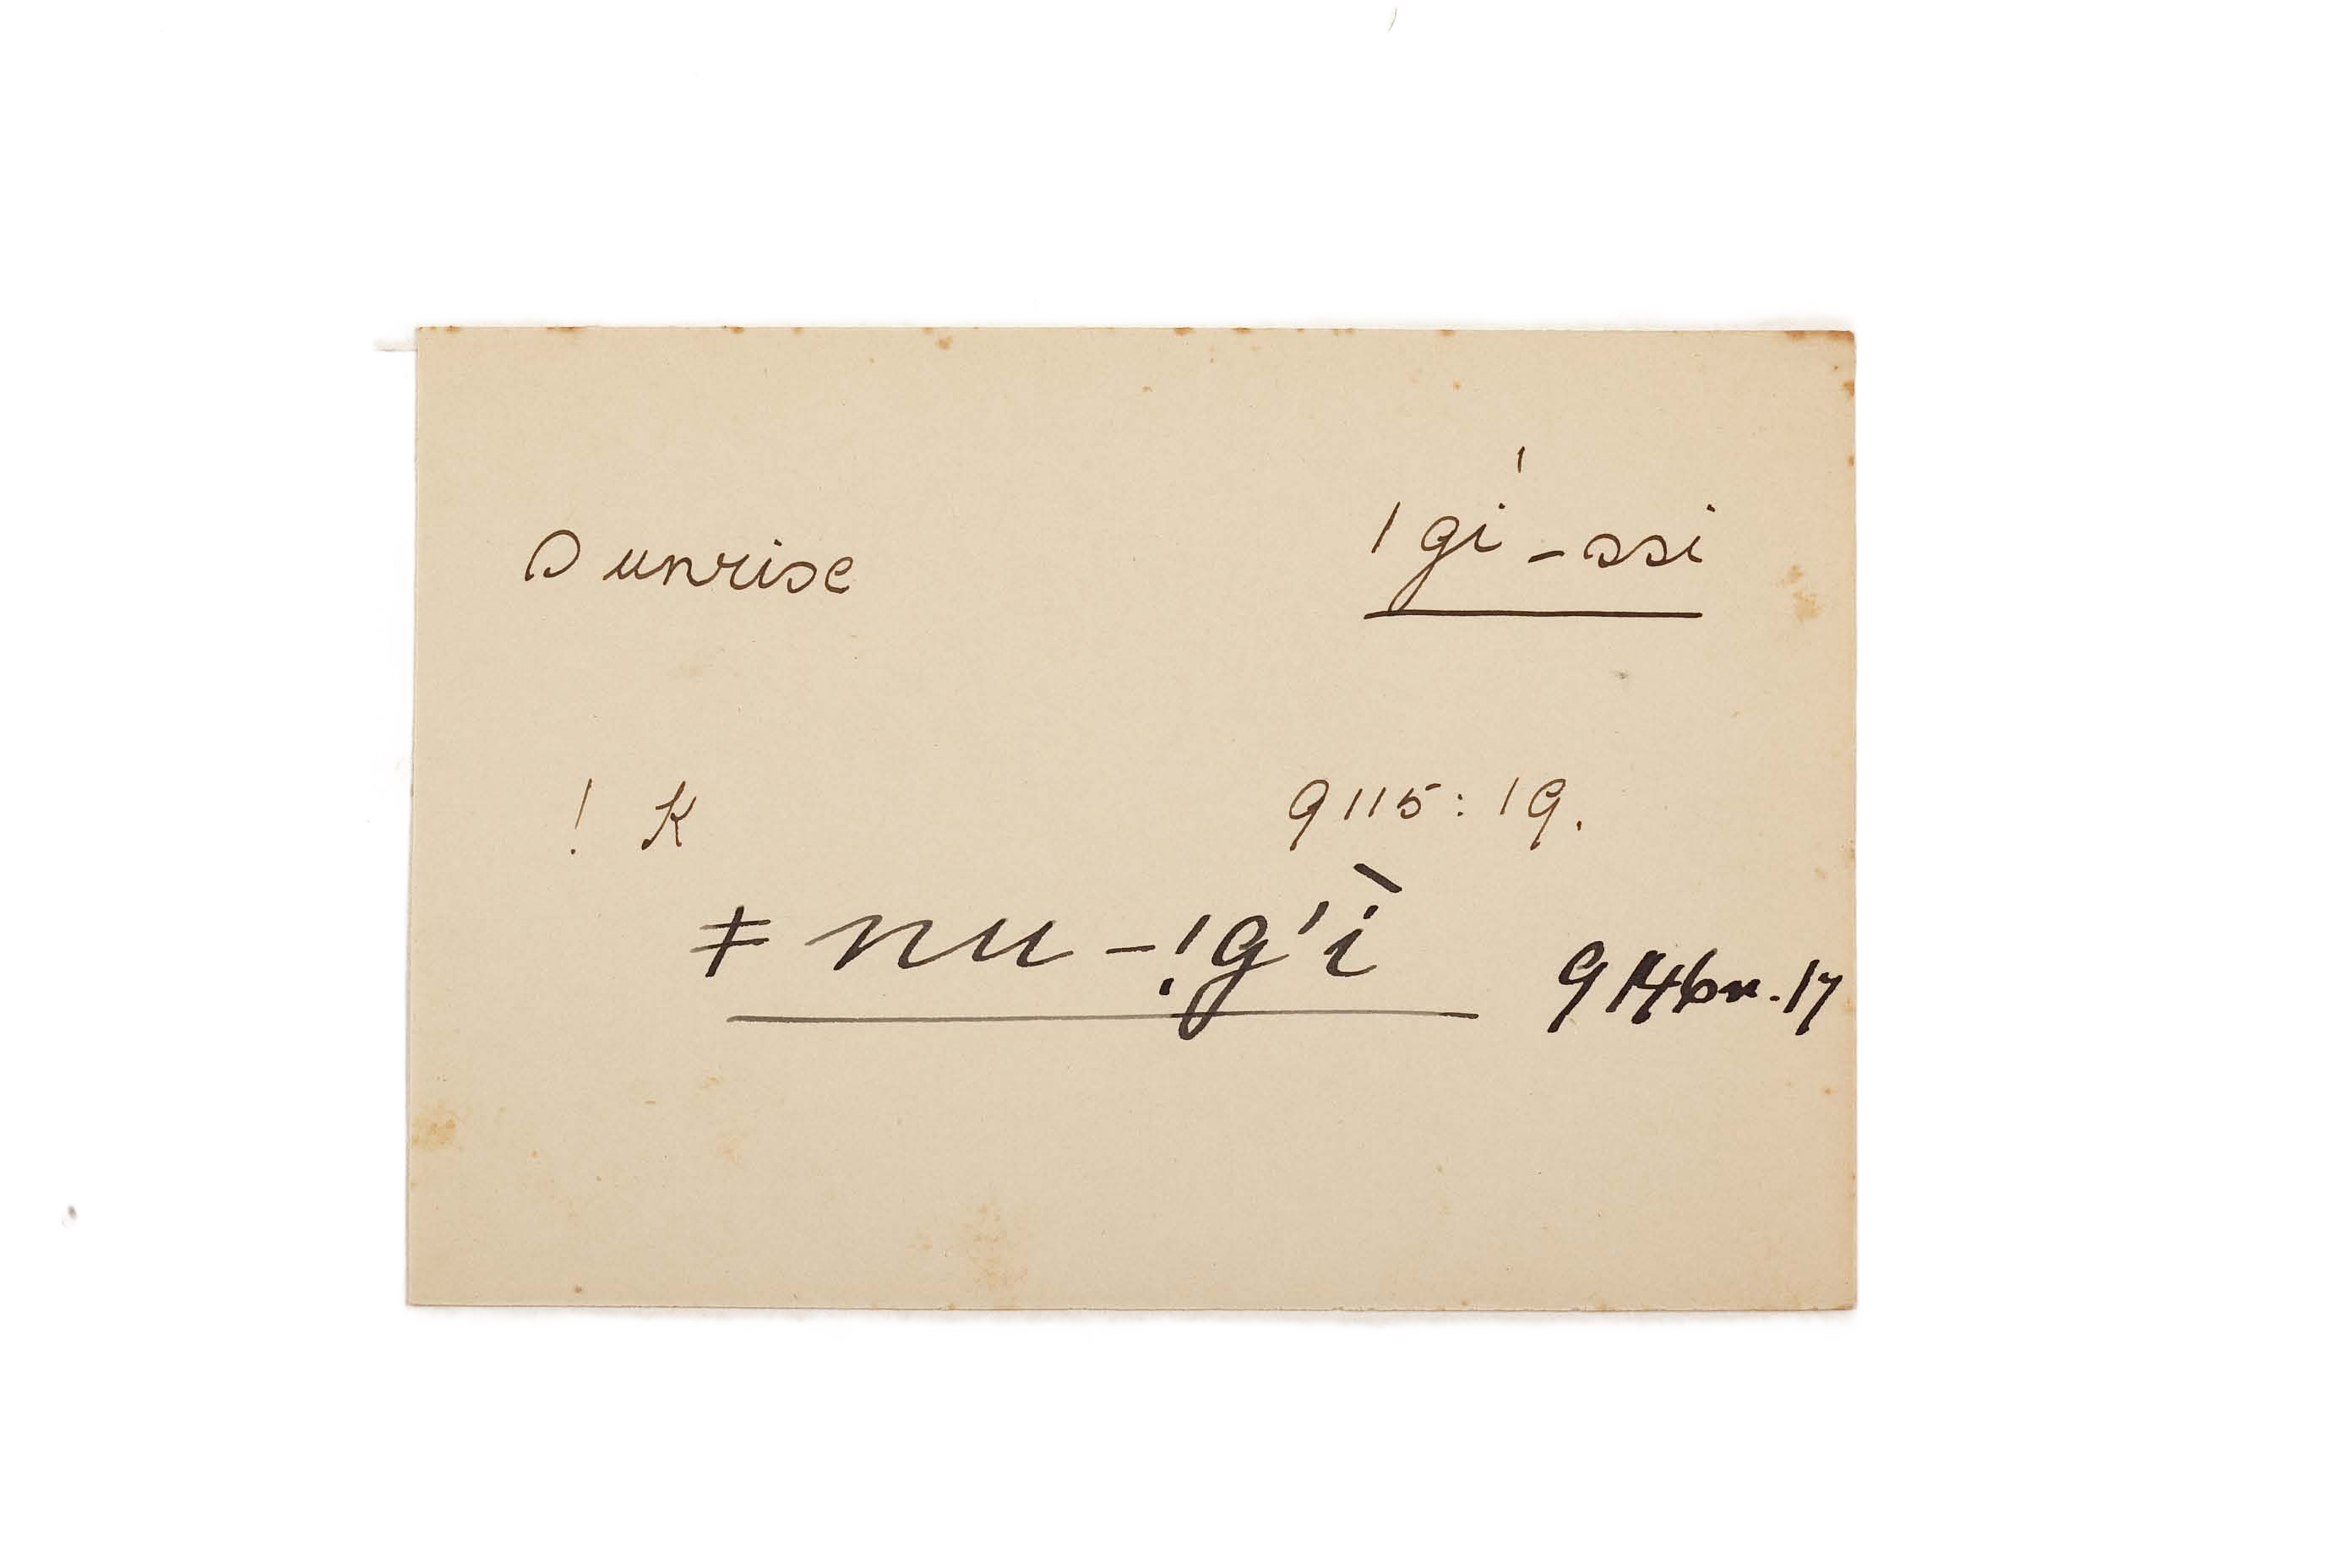 Sunrise ǀgí-ssi
! K 9115:19.
ǂ nu-ǃg'ì 9146rv.17